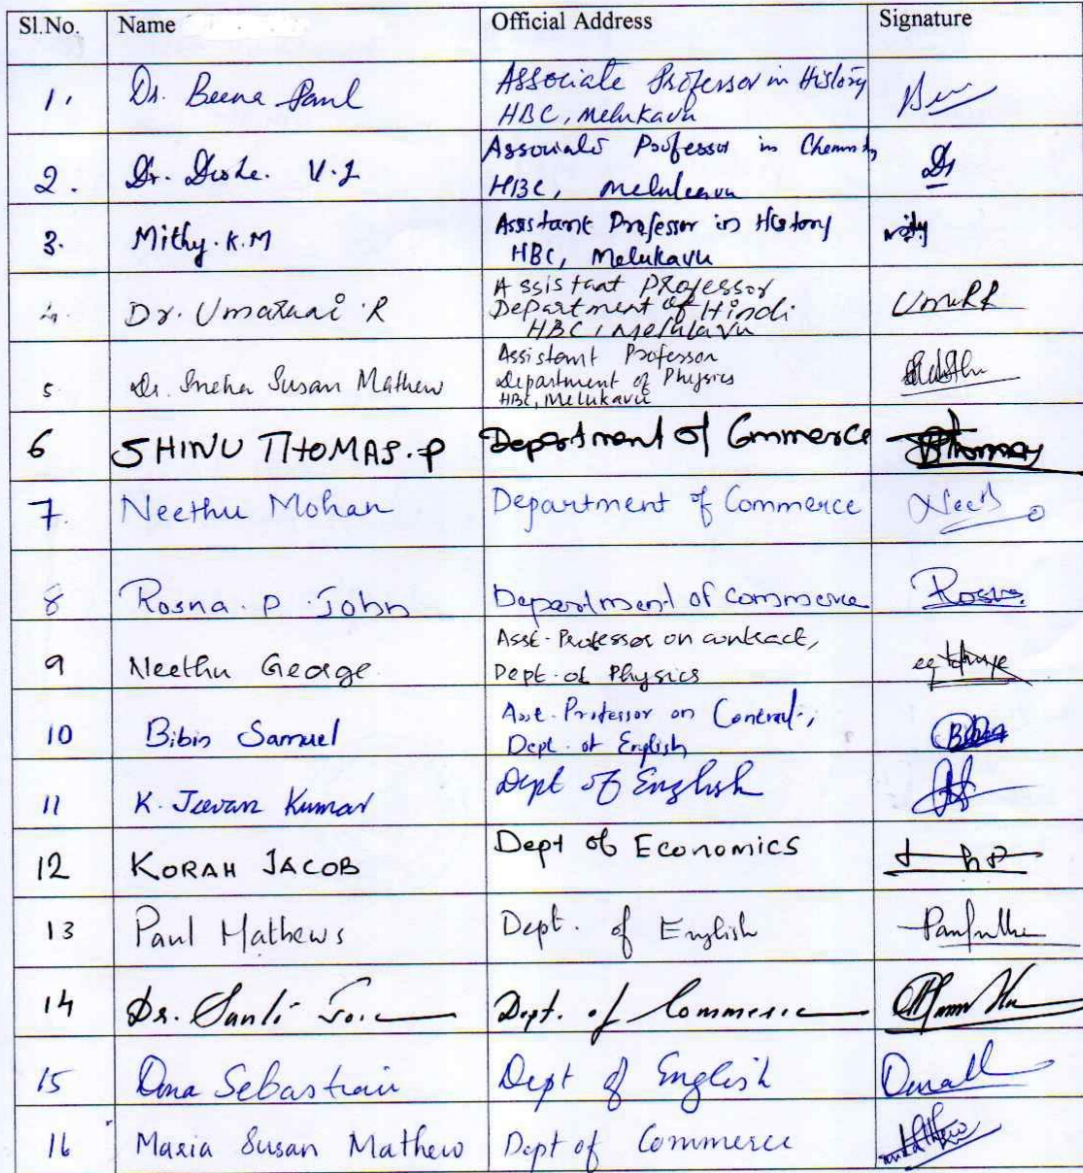 Sl.No. Name Official Address Signature
1. Dr. Beena Paul Associate Professor in History
HBC, Melukavu
2. Dr. V.J Associate Professor in Chemistry
HBC, Melukavu
3. Mithy. K.M Assistant Professor in History
HBC, Melukavu
4. Dr. Umadevi R Assistant Professor
Department of Hindi
HBC, Melukavu
5 Dr. Sneha Susan Mathew Assistant Professor
Department of Physics
HBC, Melukavu
6 SHINU THOMAS.P Department of Commerce Thomas
7. Neethu Mohan Department of Commerce
8 Rosna. P. John Department of Commerce Rosna
9 Neethu George Asst-Professor on contract,
Dept. of Physics
10 Bibin Samuel Asst. Professor on Contract,
Dept. of English
11 K. Jeevan Kumar Dept of English
12 KORAH JACOB Dept of Economics
13 Paul Mathews Dept. of English
14 Dr. Dept. of Commerce
15 Dona Sebastian Dept of English
16 Maria Susan Mathew Dept of Commerce